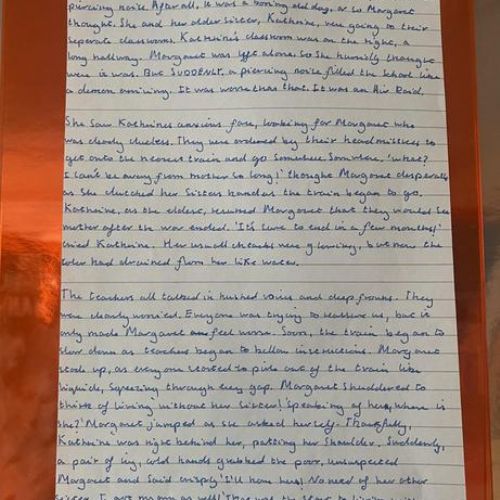 piercing noise. After all, it was a boring old day, or so Margaret
thought. She and her older sister, Katherine, were going to their
seperate classrooms. Katherine's classroom was on the right, a
long hallway. Margaret was left alone. So she humidly thought
were is was. But SUDDENLY, a piercing noise filled the school like
a demon arriving. It was worse than that. It was an Air Raid.
She saw Katherines anxious face, looking for Margaret who
was clearly clueless. They were ordered by their headmistress to
get onto the nearest train and go somewhere. Somewhere, 'what?
I can't be away from mother so long!' thought Margaret desperatly
as she clutched her sisters hand as the train began to go.
Katherine, as the eldest, reassured Margaret that they would see
mother after the war ended. 'It's sure to end in a few months!'
cried Katherine. Her usual cheeks were glowing, but now the
color had drained from her like water.
The teachers all talked in hushed voices and deep frowns. They
were clearly worried. Everyone was trying to reashure us, but is
only made Margaret feel worse. Soon, the train began to
slow down as teachers began to bellow instructions. Margaret
stood up, as everyone started to pure out of the train like
liquid, squeezing through every gap. Margaret shuddered to
think of living without her sister! 'Speaking of her, where is
she?' Margaret jumped as she asked herself. Thankfully,
Katherine was right behind her, patting her shoulder. Suddenly,
a pair of icy, cold hands grabbed the poor, unsuspected
Margaret and said crisply 'I'll have her! No need of her other
sister, I got